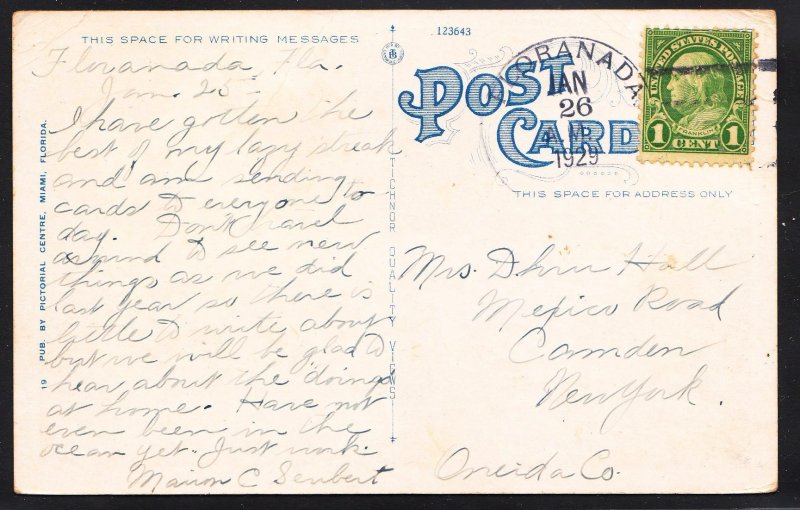 THIS SPACE FOR WRITING MESSAGES
Floranada, Fla.
Jan. 25 -
I have gotten the
best of my lazy streak
and am sending
cards to everyone to
day. Don't travel
around to see new
things as we did
last year so there is
little to write about
but we will be glad to
hear about the "doings"
at home. Have not
even been in the
ocean yet. Just work.
Marion C Seubert
19 PUB. BY PICTORIAL CENTRE, MIAMI, FLORIDA.
TICHNOR QUALITY VIEWS
123643
POST
CARD
THIS SPACE FOR ADDRESS ONLY
LORANADA
JAN
26
A.M.
1929
UNITED STATES POSTAGE
FRANKLIN
1 CENT 1
Mrs. Hall
Mexico Road
Camden
New York.
Oneida Co.